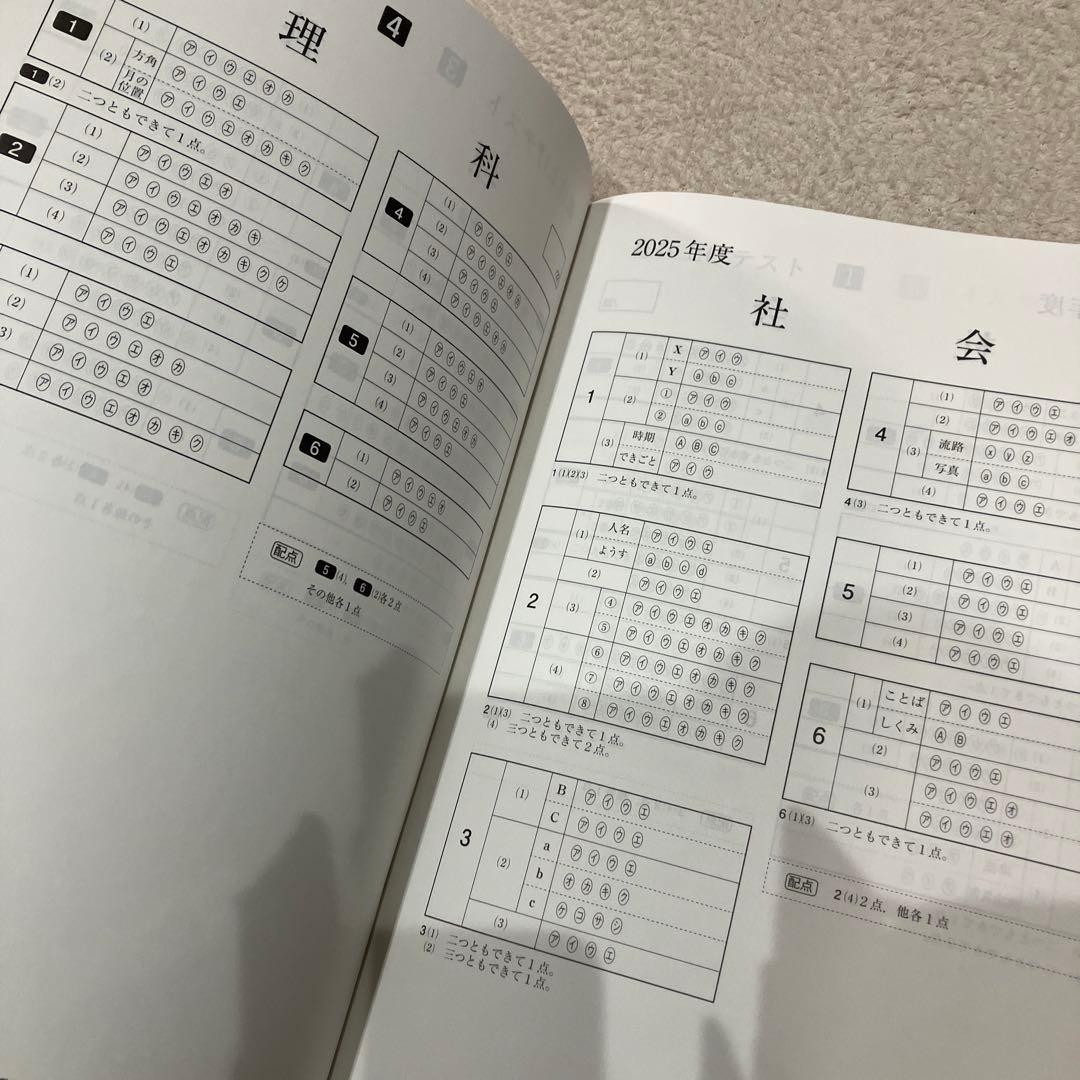 理 科
4
1
(1) ㋐ ㋑ ㋒ ㋓ ㋔ ㋕
(2) 方角 ㋐ ㋑ ㋒ ㋓
月の位置 ㋐ ㋑ ㋒ ㋓ ㋔ ㋕ ㋖ ㋗
1 (2) 二つともできて1点。
2
(1) ㋐ ㋑ ㋒ ㋓ ㋔
(2) ㋐ ㋑ ㋒ ㋓ ㋔ ㋕ ㋖
(3) ㋐ ㋑ ㋒ ㋓ ㋔ ㋕ ㋖ ㋗ ㋘
(4) ㋐ ㋑ ㋒ ㋓
(1) ㋐ ㋑ ㋒ ㋓
(2) ㋐ ㋑ ㋒ ㋓ ㋔ ㋕
3) ㋐ ㋑ ㋒ ㋓ ㋔
㋐ ㋑ ㋒ ㋓ ㋔ ㋕ ㋖ ㋗
4
(1) ㋐ ㋑ ㋒ ㋓
(2) ㋐ ㋑ ㋒ ㋓ ㋔
(3) ㋐ ㋑ ㋒ ㋓
(4) ㋐ ㋑ ㋒ ㋓ ㋔
5
(1) ㋐ ㋑ ㋒ ㋓ ㋔
(2) ㋐ ㋑ ㋒ ㋓
(3) ㋐ ㋑ ㋒ ㋓ ㋔
(4) ㋐ ㋑ ㋒ ㋓
6
(1) ㋐ ㋑ ㋒ ㋓ ㋔
(2) ㋐ ㋑ ㋒ ㋓
配点 5 (4), 6 (2)各2点
その他各1点
2025年度
社 会
1
(1) X ㋐ ㋑ ㋒
Y ⓐ ⓑ ⓒ
(2) ① ㋐ ㋑ ㋒
② ⓐ ⓑ ⓒ
(3) 時期 Ⓐ Ⓑ Ⓒ
できごと ㋐ ㋑ ㋒
1 (1)(2)(3) 二つともできて1点。
2
(1) 人名 ㋐ ㋑ ㋒ ㋓
ようす ⓐ ⓑ ⓒ ⓓ
(2) ㋐ ㋑ ㋒ ㋓
(3) ④ ㋐ ㋑ ㋒ ㋓ ㋔ ㋕ ㋖ ㋗
⑤ ㋐ ㋑ ㋒ ㋓ ㋔ ㋕ ㋖ ㋗
(4) ⑥ ㋐ ㋑ ㋒ ㋓ ㋔ ㋕ ㋖ ㋗
⑦ ㋐ ㋑ ㋒ ㋓ ㋔ ㋕ ㋖ ㋗
⑧ ㋐ ㋑ ㋒ ㋓ ㋔ ㋕ ㋖ ㋗
2 (1)(3) 二つともできて1点。
(4) 三つともできて2点。
3
(1) B ㋐ ㋑ ㋒ ㋓
C ㋐ ㋑ ㋒ ㋓
(2) a ㋐ ㋑ ㋒ ㋓
b ㋔ ㋕ ㋖ ㋗
c ㋘ ㋙ ㋚ ㋛
(3) ㋐ ㋑ ㋒ ㋓
3 (1) 二つともできて1点。
(2) 三つともできて1点。
4
(1) ㋐ ㋑ ㋒ ㋓
(2) ㋐ ㋑ ㋒ ㋓ ㋔
(3) 流路 ⓧ ⓨ ⓩ
写真 ⓐ ⓑ ⓒ
(4) ㋐ ㋑ ㋒ ㋓
4 (3) 二つともできて1点。
5
(1) ㋐ ㋑ ㋒ ㋓
(2) ㋐ ㋑ ㋒ ㋓
(3) ㋐ ㋑ ㋒ ㋓
(4) ㋐ ㋑ ㋒ ㋓
6
(1) ことば ㋐ ㋑ ㋒ ㋓
しくみ Ⓐ Ⓑ
(2) ㋐ ㋑ ㋒ ㋓
(3) ㋐ ㋑ ㋒ ㋓ ㋔
㋐ ㋑ ㋒ ㋓ ㋔
6 (1)(3) 二つともできて1点。
配点 2 (4)2点, 他各1点